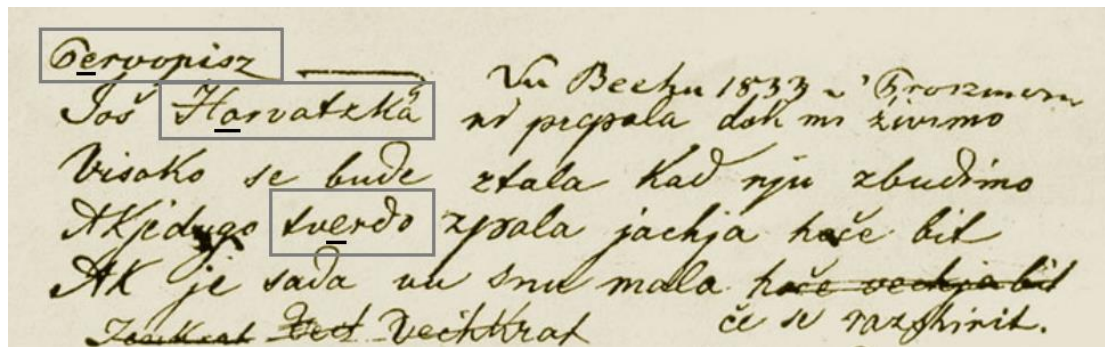 Pervopisz
Vu Bechu 1833
Još Horvatzka ni propala dok mi živimo
Visoko se bude ztala kad nju zbudimo
Ak je dugo tverdo zpala jachja hoče bit
Ak je sada vu snu mala hoče vechja bit
če se razširit.
Vechkrat